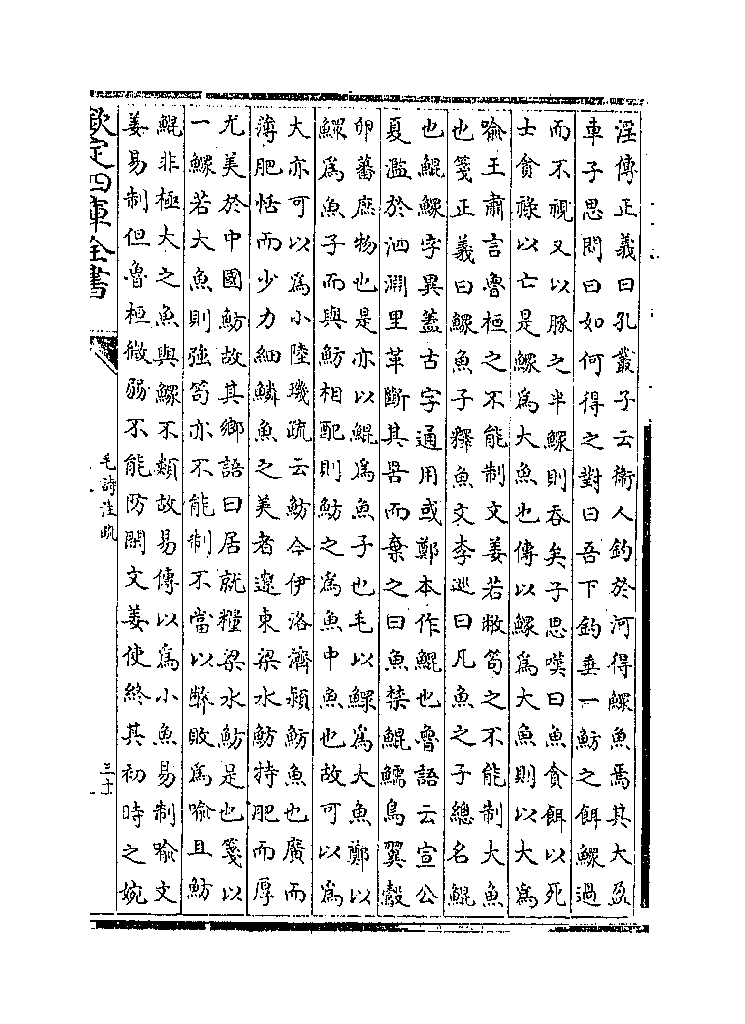 淫傳正義曰孔叢子云衛人釣於河得鰥魚焉其大盈
車子思問曰如何得之對曰吾下釣垂一魴之餌鰥過
而不視又以豚之半鰥則吞矣子思嘆曰魚貪餌以死
士貪祿以亡是鰥為大魚也傳以鰥為大魚則以大為
喻王肅言魯桓之不能制文姜若敝笱之不能制大魚
也箋正義曰鰥魚子釋魚文李廵曰凡魚之子總名鯤
也鯤鰥字異蓋古字通用或鄭本作鯤也魯語云宣公
夏濫於泗淵里革斷其罟而棄之曰魚禁鯤鱬鳥翼鷇
卵蕃庶物也是亦以鯤為魚子也毛以鰥為大魚鄭以
鰥為魚子而與魴相配則魴之為魚中魚也故可以為
大亦可以為小陸璣疏云魴今伊洛濟潁魴魚也廣而
薄肥恬而少力細鱗魚之美者遼東梁水魴特肥而厚
尤美於中國魴故其鄉語曰居就糧梁水魴是也箋以
一鰥若大魚則強笱亦不能制不當以弊敗為喻且魴
鯤非極大之魚與鰥不類故易傳以為小魚易制喻文
姜易制但魯桓微弱不能防閑文姜使終其初時之婉
欽定四庫全書
毛詩注疏
三十